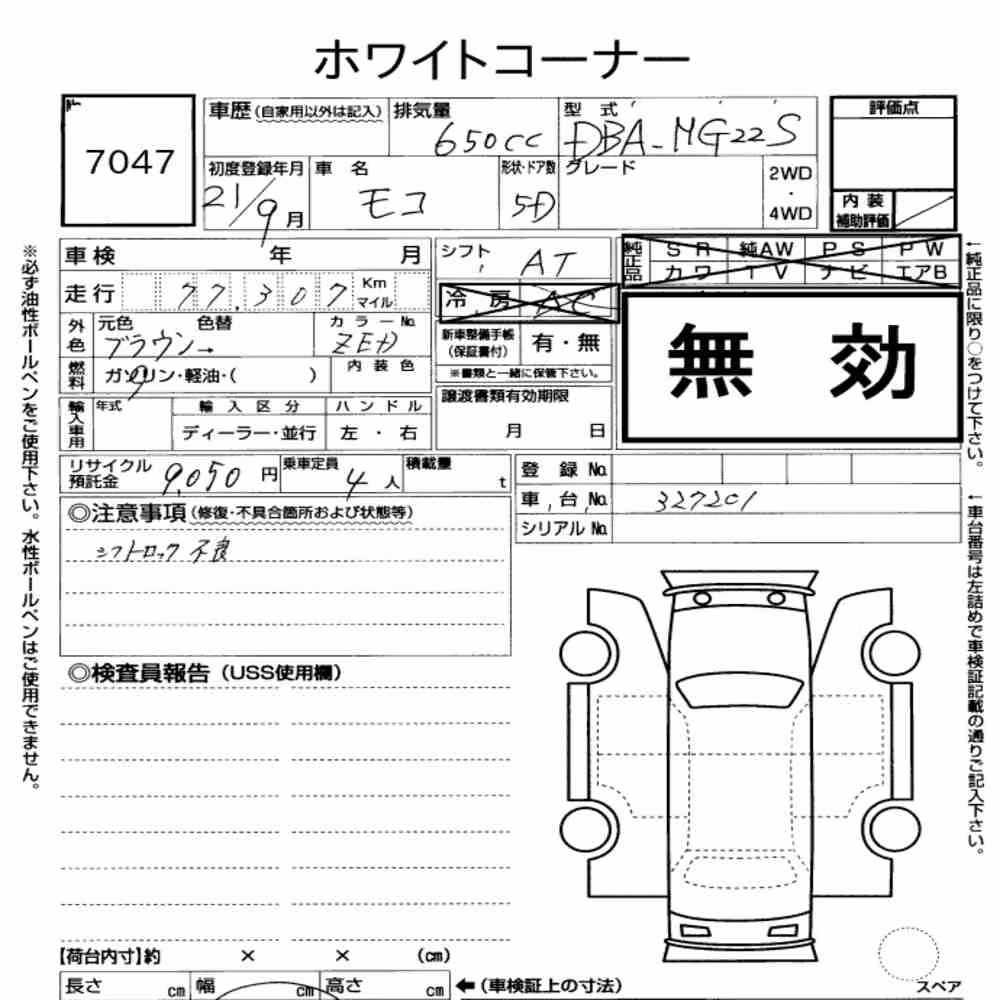 ホワイトコーナー
7047
車歴 (自家用以外は記入) 排気量 650cc 型式 DBA-MG22S 評価点
初度登録年月 21/9月 車名 モコ 形状・ドア数 5D グレード 2WD ・ 4WD
内装補助評価
車検 年 月 シフト AT 純正品 SR 純AW PS PW
カワ TV ナビ エアB
走行 77,307 Km マイル 冷房 AC
外色 元色 ブラウン→ 色替 カラーNo. ZED 新車整備手帳 (保証書付) 有・無
※書類と一緒に保管下さい。
無効
燃料 ガソリン・軽油・( ) 内装色
譲渡書類有効期限
月 日
輸入車用 年式 輸入区分 ハンドル
ディーラー・並行 左・右
リサイクル預託金 9,050円 乗車定員 4人 積載量 t
登録No.
車台No. 327201
シリアルNo.
◎注意事項 (修復・不具合箇所および状態等)
シフトロック 不良
◎検査員報告 (USS使用欄)
【荷台内寸】約 × × (cm)
長さ cm 幅 cm 高さ cm ←(車検証上の寸法)
スペア
※必ず油性ボールペンをご使用下さい。水性ボールペンはご使用できません。
←純正品に限り○をつけて下さい。
←車台番号は左詰めで車検証記載の通りご記入下さい。